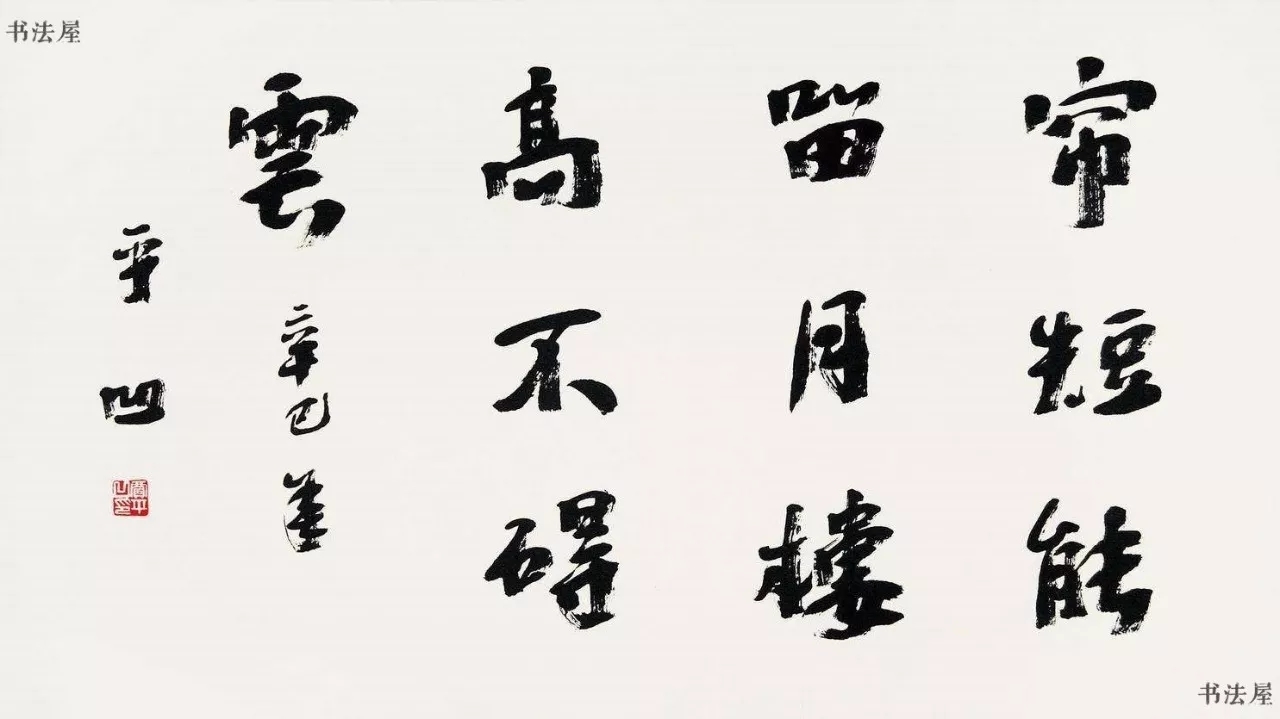 书法屋
帘短能
留月樓
高不碍
雲 辛巳
平凹
书法屋